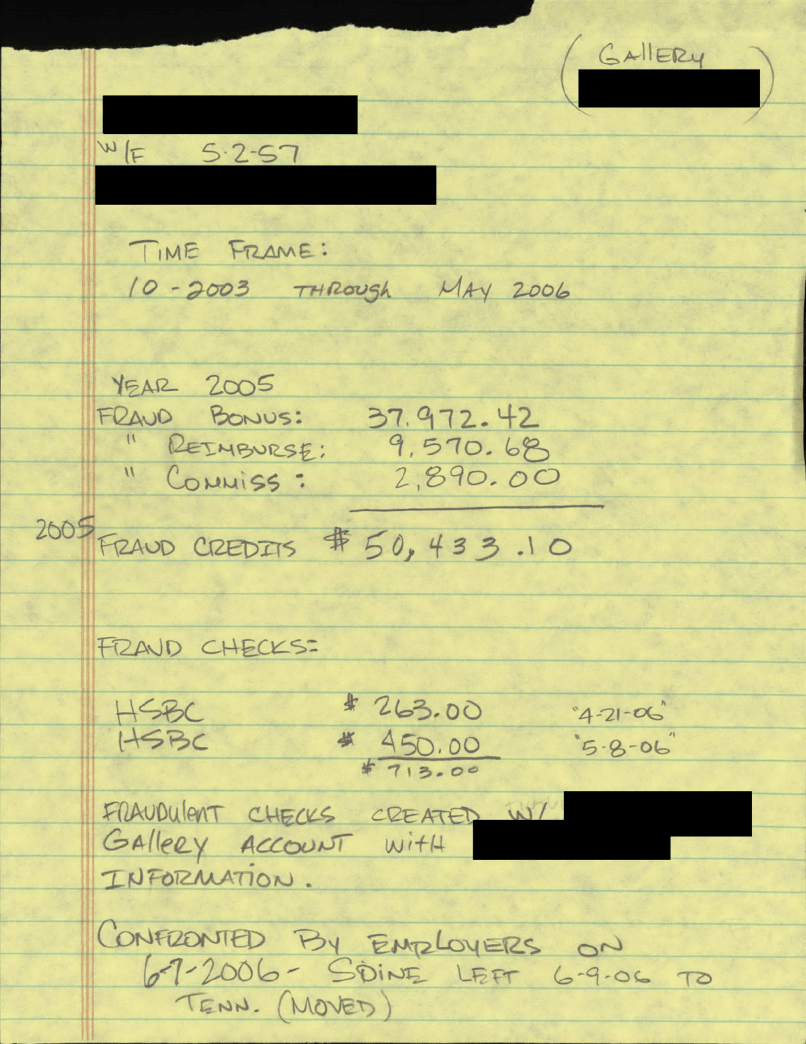 (GALLERY
)
W/F 5-2-57
TIME FRAME:
10-2003 THROUGH MAY 2006
YEAR 2005
FRAUD BONUS: 37,972.42
" REIMBURSE: 9,570.68
" COMMISS: 2,890.00
2005 FRAUD CREDITS $ 50,433.10
FRAUD CHECKS:
HSBC $ 263.00 "4-21-06"
HSBC $ 450.00 "5-8-06"
$ 713.00
FRAUDULENT CHECKS CREATED W/
GALLERY ACCOUNT WITH
INFORMATION.
CONFRONTED BY EMPLOYERS ON
6-7-2006 - LEFT 6-9-06 TO
TENN. (MOVED)